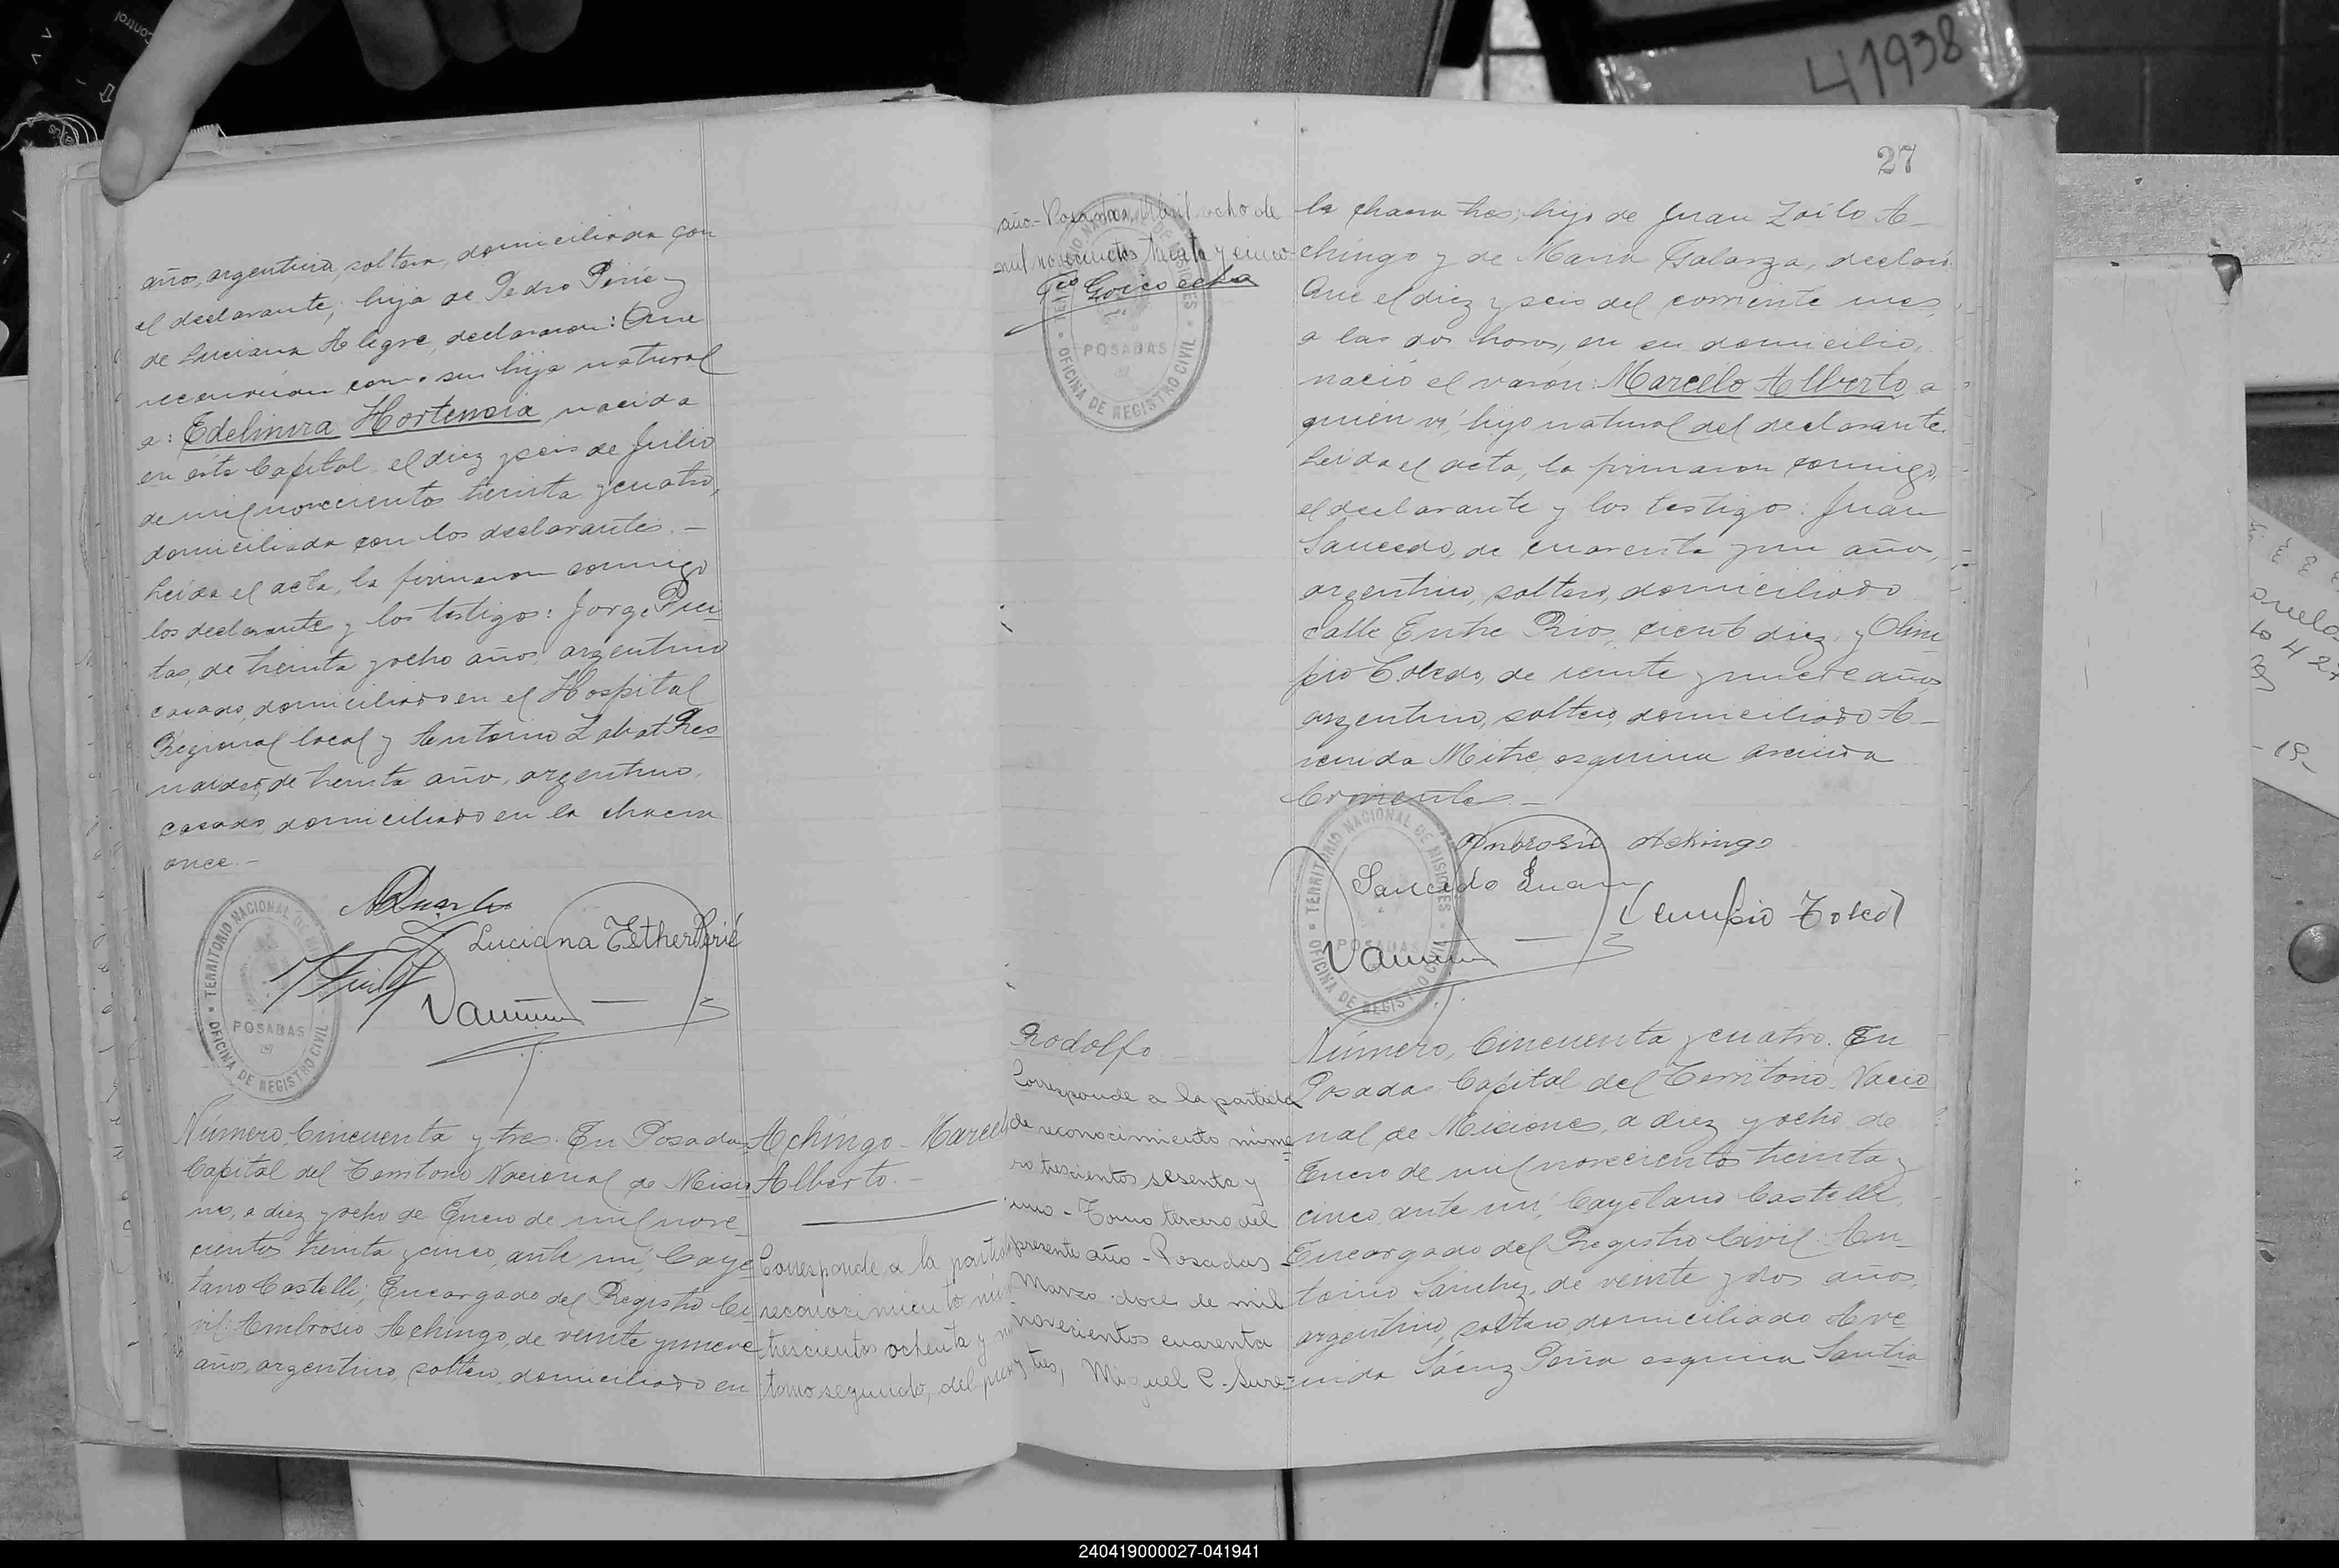 41938
27
años, argentina, soltera, domiciliada con
el declarante; hija de Pedro Perié y
de Luciana Alegre, declararon: Que
reconocían como su hija natural
a: Edelmira Hortensia, nacida
en esta Capital, el diez y seis de Julio
de mil novecientos treinta y cuatro,
domiciliada con los declarantes.-
Leída el acta, la firmaron conmigo
los declarantes y los testigos: Jorge
tas, de treinta y ocho años, argentino
casado, domiciliado en el Hospital
Regional local y Antonio Labat
de treinta años, argentino,
casado, domiciliado en la chacra
once.-
Luciana Esther Perié
TERRITORIO NACIONAL DE MISIONES
POSADAS
OFICINA DE REGISTRO CIVIL
Número, Cincuenta y tres. En Posadas
Capital del Territorio Nacional de Misio
nes, a diez y ocho de Enero de mil nove
cientos treinta y cinco, ante mí, Caye
tano Castelli, Encargado del Registro Ci
vil: Ambrosio Achingo, de veinte y nueve
años, argentino, soltero, domiciliado en
Achingo - Marcelo
Alberto.-
Corresponde a la partida
reconocimiento
trescientos ochenta y
tomo segundo, del
año.- Posadas, Abril ocho de
mil novecientos treinta y cinco
Goicoechea
TERRITORIO NACIONAL DE MISIONES
POSADAS
OFICINA DE REGISTRO CIVIL
la chacra tres; hijo de Juan Zoilo A-
chingo y de María Galarza, declaró:
Que el diez y seis del corriente mes,
a las dos horas, en su domicilio,
nació el varón: Marcelo Alberto, a
quien vi, hijo natural del declarante.
Leída el acta, la firmaron conmigo,
el declarante y los testigos: Juan
Saucedo, de cuarenta y un años,
argentino, soltero, domiciliado
calle Entre Rios, ciento diez, y Olim
pio Toledo, de veinte y nueve años
argentino, soltero, domiciliado A-
venida Mitre esquina avenida
Corrientes.-
Ambrosio Achingo
Saucedo Juan
Toledo
TERRITORIO NACIONAL DE MISIONES
POSADAS
OFICINA DE REGISTRO CIVIL
Rodolfo
Corresponde a la partida
de reconocimiento núme
ro trescientos sesenta y
uno - Tomo tercero del
presente año - Posadas -
Marzo doce de mil
novecientos cuarenta
y tres, Miguel C.
Número, Cincuenta y cuatro. En
Posadas Capital del Territorio Nacio
nal de Misiones, a diez y ocho de
Enero de mil novecientos treinta y
cinco, ante mí, Cayetano Castelli,
Encargado del Registro Civil: An-
tonio Sánchez, de veinte y dos años,
argentino, soltero domiciliado Ave
nida Sáenz Peña esquina Santia
240419000027-041941